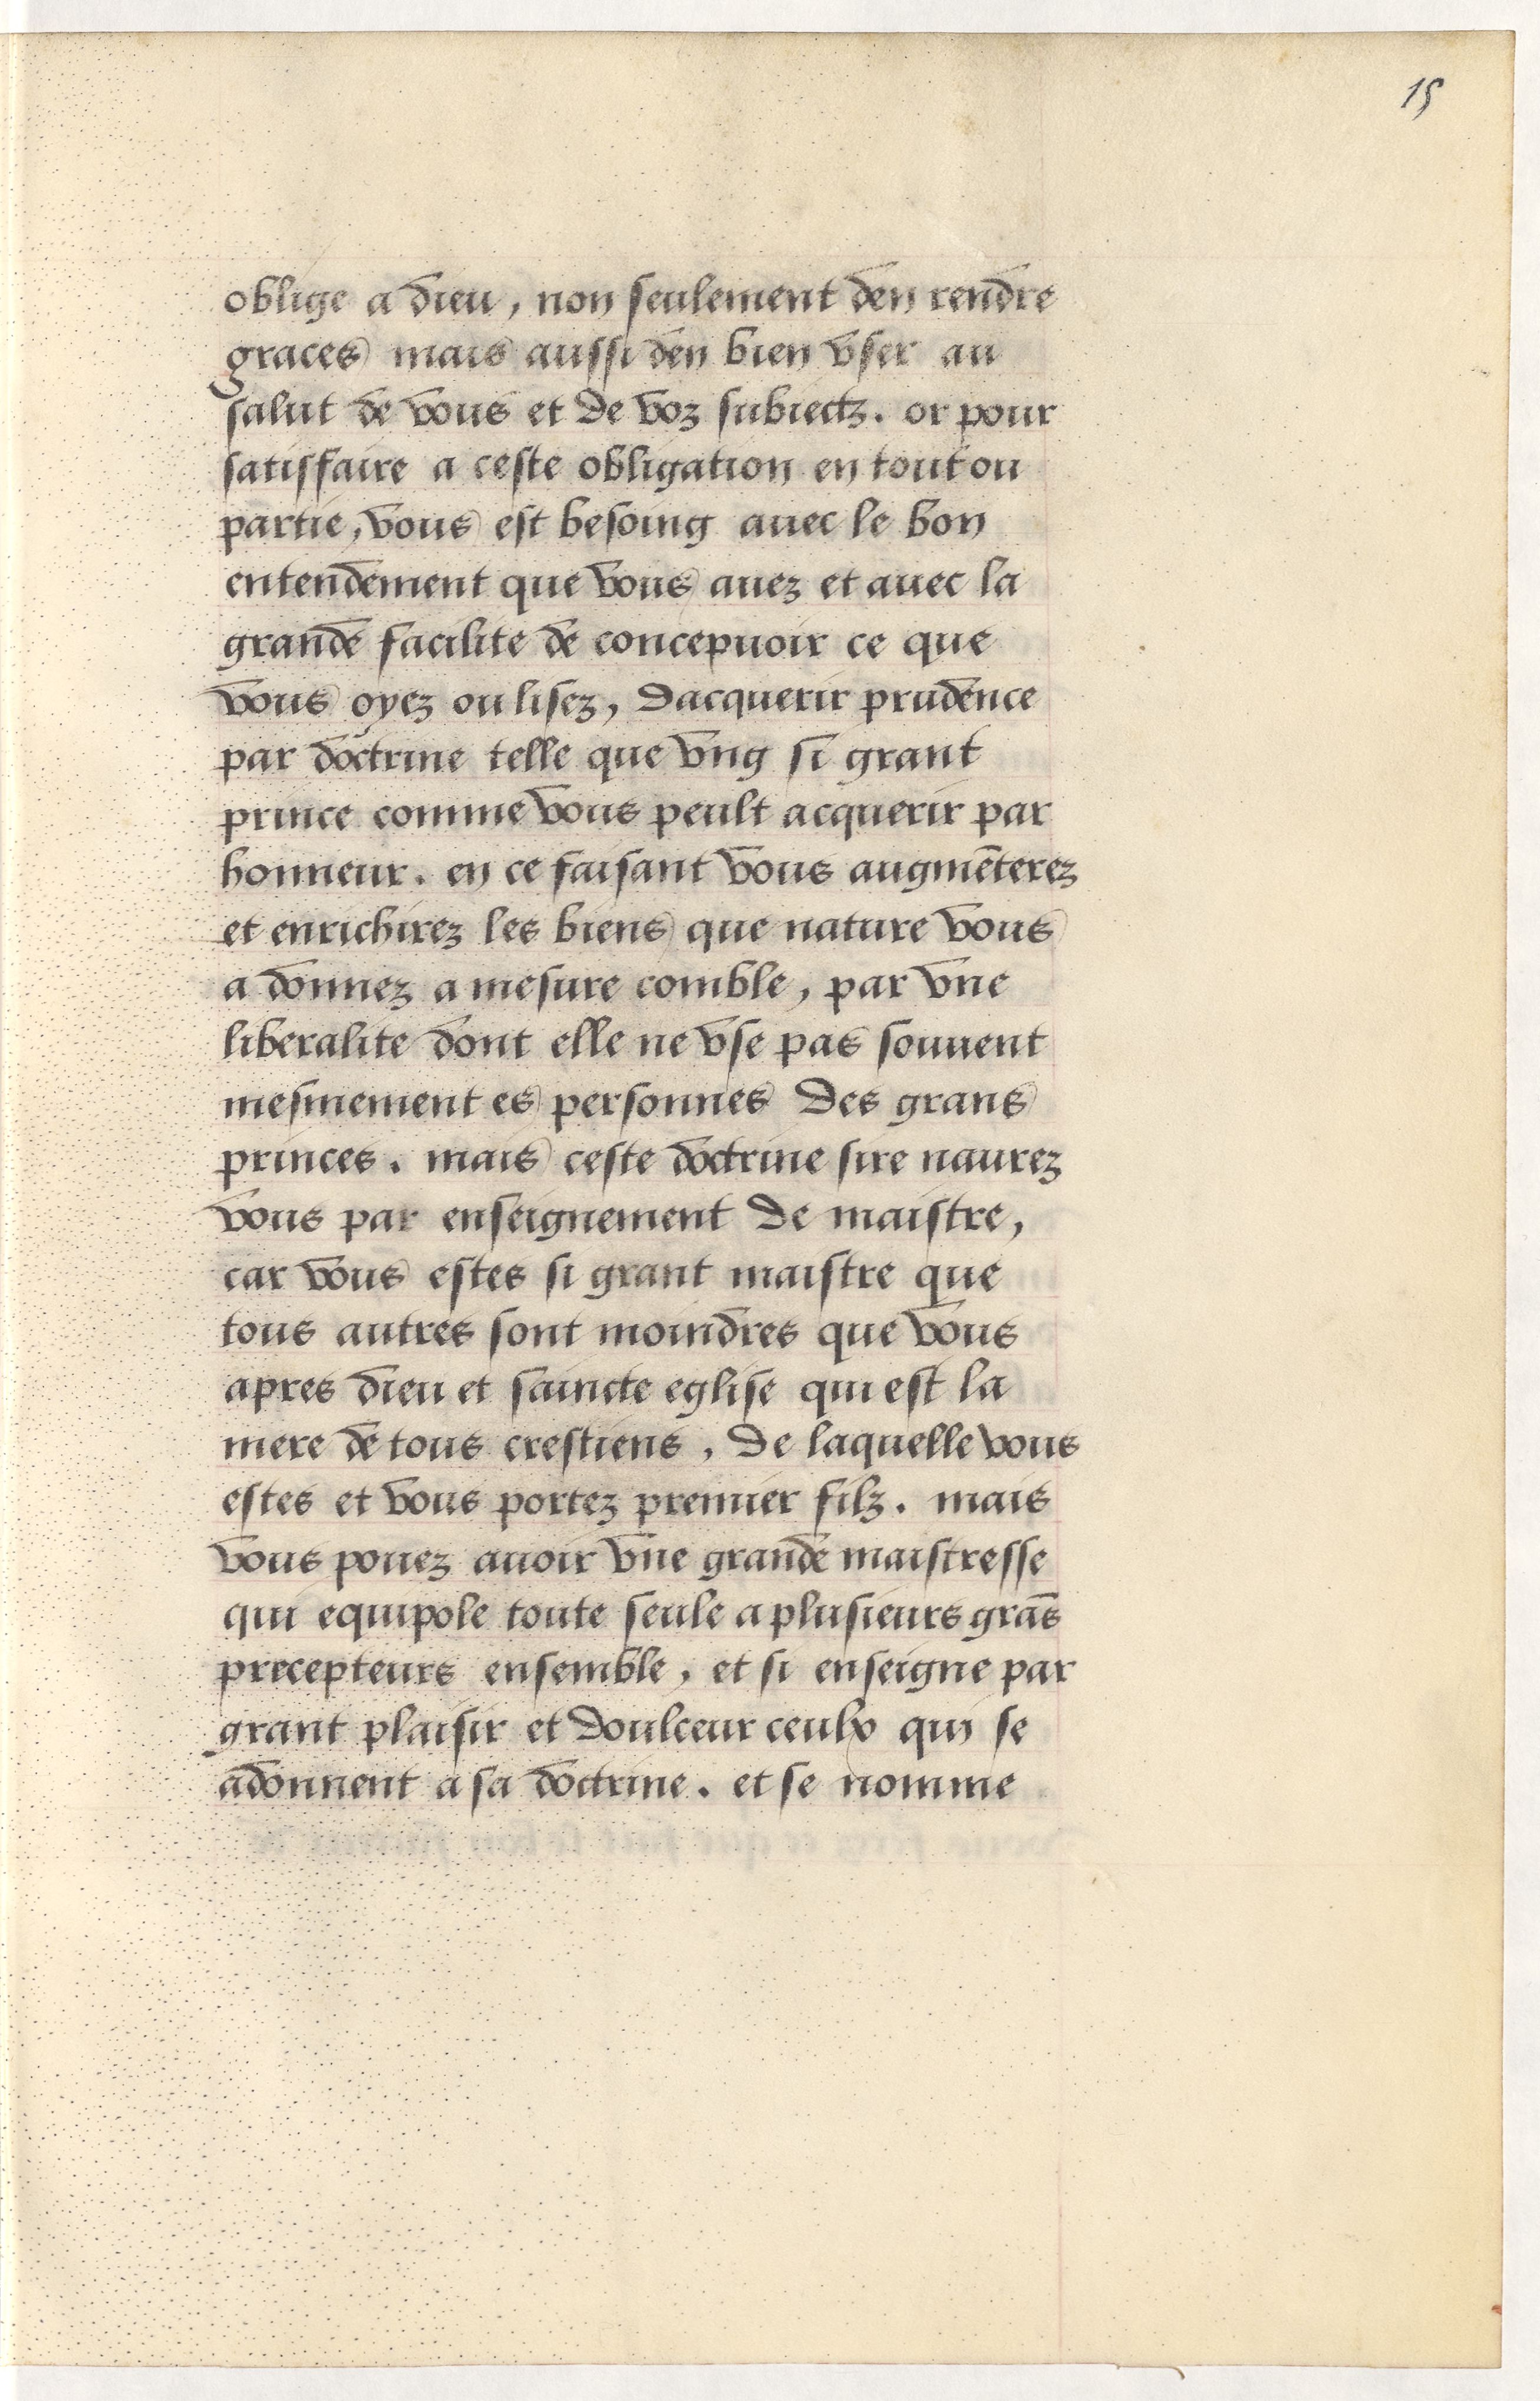 15
oblige a dieu, non seulement den rendre
graces mais aussi den bien vser au
salut de vous et de voz subiectz. or pour
satisfaire a ceste obligation en tout ou
partie, vous est besoing auec le bon
entendement que vous auez et auec la
grande facilite de concepuoir ce que
vous oyez ou lisez, dacquerir prudence
par doctrine telle que vng si grant
prince comme vous peult acquerir par
honneur. en ce faisant vous augmēterez
et enrichirez les biens que nature vous
a donnez a mesure comble, par vne
liberalite dont elle ne vse pas souuent
mesmement es personnes des grans
princes. mais ceste doctrine sire naurez
vous par enseignement de maistre,
car vous estes si grant maistre que
tous autres sont moindres que vous
apres dieu et saincte eglise qui est la
mere de tous crestiens, de laquelle vous
estes et vous portez premier filz. mais
vous pouez auoir vne grande maistresse
qui equipole toute seule a plusieurs grās
precepteurs ensemble, et si enseigne par
grant plaisir et doulceur ceulx qui se
adonnent a sa doctrine. et se nomme